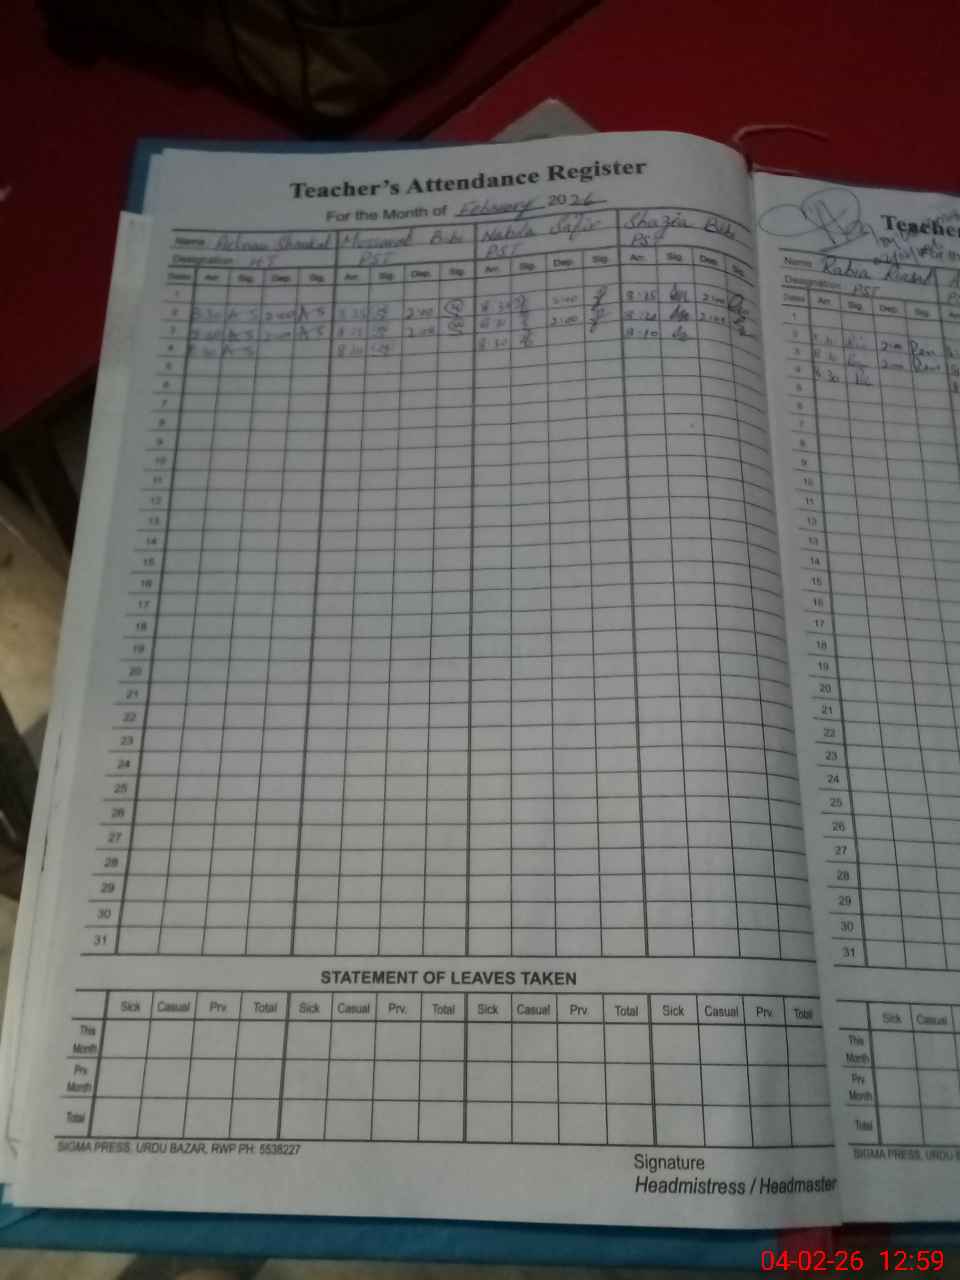 Teacher's Attendance Register
For the Month of February 2026
Name Adnan Shaukat Mussarat Bibi Nabila Safir Shazia Bibi
Designation HT PST PST PST
Dates Arr. Sig. Dep. Sig. Arr. Sig. Dep. Sig. Arr. Sig. Dep. Sig. Arr. Sig. Dep. Sig.
1
2 8:30 A-S 2:00 A-S 8:25 2:00 8:30 2:00 8:25 2:00
3 A-S 2:00 A-S 2:00 2:00 8:20 2:00
4 8:30 A-S 8:30 8:30 8:10
5
6
7
8
9
10
11
12
13
14
15
16
17
18
19
20
21
22
23
24
25
26
27
28
29
30
31
STATEMENT OF LEAVES TAKEN
Sick Casual Prv. Total Sick Casual Prv. Total Sick Casual Prv. Total Sick Casual Prv. Total
This Month
Prv. Month
Total
SIGMA PRESS, URDU BAZAR, RWP PH: 5538227
Signature
Headmistress / Headmaster
Name Rabia
Designation PST
Dates Arr. Sig. Dep. Sig.
1
2 2:00
3 2:00
4 8:30
5
6
7
8
9
10
11
12
13
14
15
16
17
18
19
20
21
22
23
24
25
26
27
28
29
30
31
Sick Casual
This Month
Prv. Month
Total
SIGMA PRESS, URDU
04-02-26 12:59